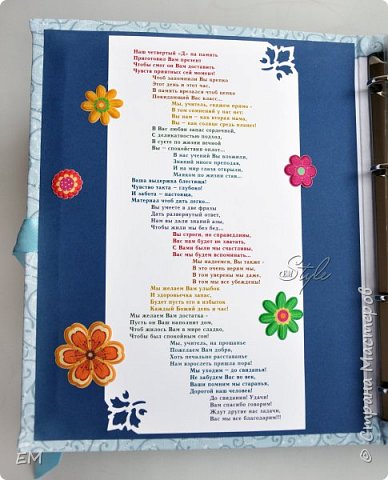 Наш четвертый «Д» на память
Приготовил Вам презент
Чтобы смог он Вам доставить
Чувств приятных сей момент!
Чтоб запомнили Вы крепко
Этот день и этот час,
В память врезался чтоб цепко
Покидающий Вас класс...
Мы, учитель, скажем прямо -
В том сомнений у нас нет:
Вы нам – как вторая мама,
Вы – как солнце средь планет!
В Вас любви запас сердечной,
С деликатностью подход,
В суете по жизни вечной
Вы – спокойствия оплот...
В нас учений Вы вложили,
Знаний много преподав,
И на мир глаза открыли,
Маяком по жизни став...
Ваша выдержка блестяща!
Чувство такта – глубоко!
И забота – настояща,
Материал чтоб дать легко...
Вы умеете в две фразы
Дать развернутый ответ,
Нам вы дали знаний азы,
Чтобы жили мы без бед...
Вы строги, но справедливы,
Вас нам будет не хватать,
С Вами были мы счастливы,
Вас мы будем вспоминать...
Мы надеемся, Вы также -
В это очень верим мы,
В том уверены мы даже,
В том мы все убеждены!
Мы желаем Вам улыбок
И здоровья запас,
Будет пусть его в избыток
Каждый Божий день и час!
Мы желаем Вам достатка -
Пусть он Ваш наполнит дом,
Чтоб жилось Вам в мире сладко,
Чтобы был спокойным сон!
Мы, учитель, на прощанье
Пожелаем Вам добра,
Хоть печально расставанье
Нам взрослеть пришла пора!
Мы уходим – до свиданья!
Не забудем Вас во век,
Ваши помним мы старанья,
Дорогой наш человек!
До свидания! Удачи!
Вам спасибо говорим!
Ждут другие нас задачи,
Вас мы все благодарим!!!
EM Style
EM
© Страна Мастеров